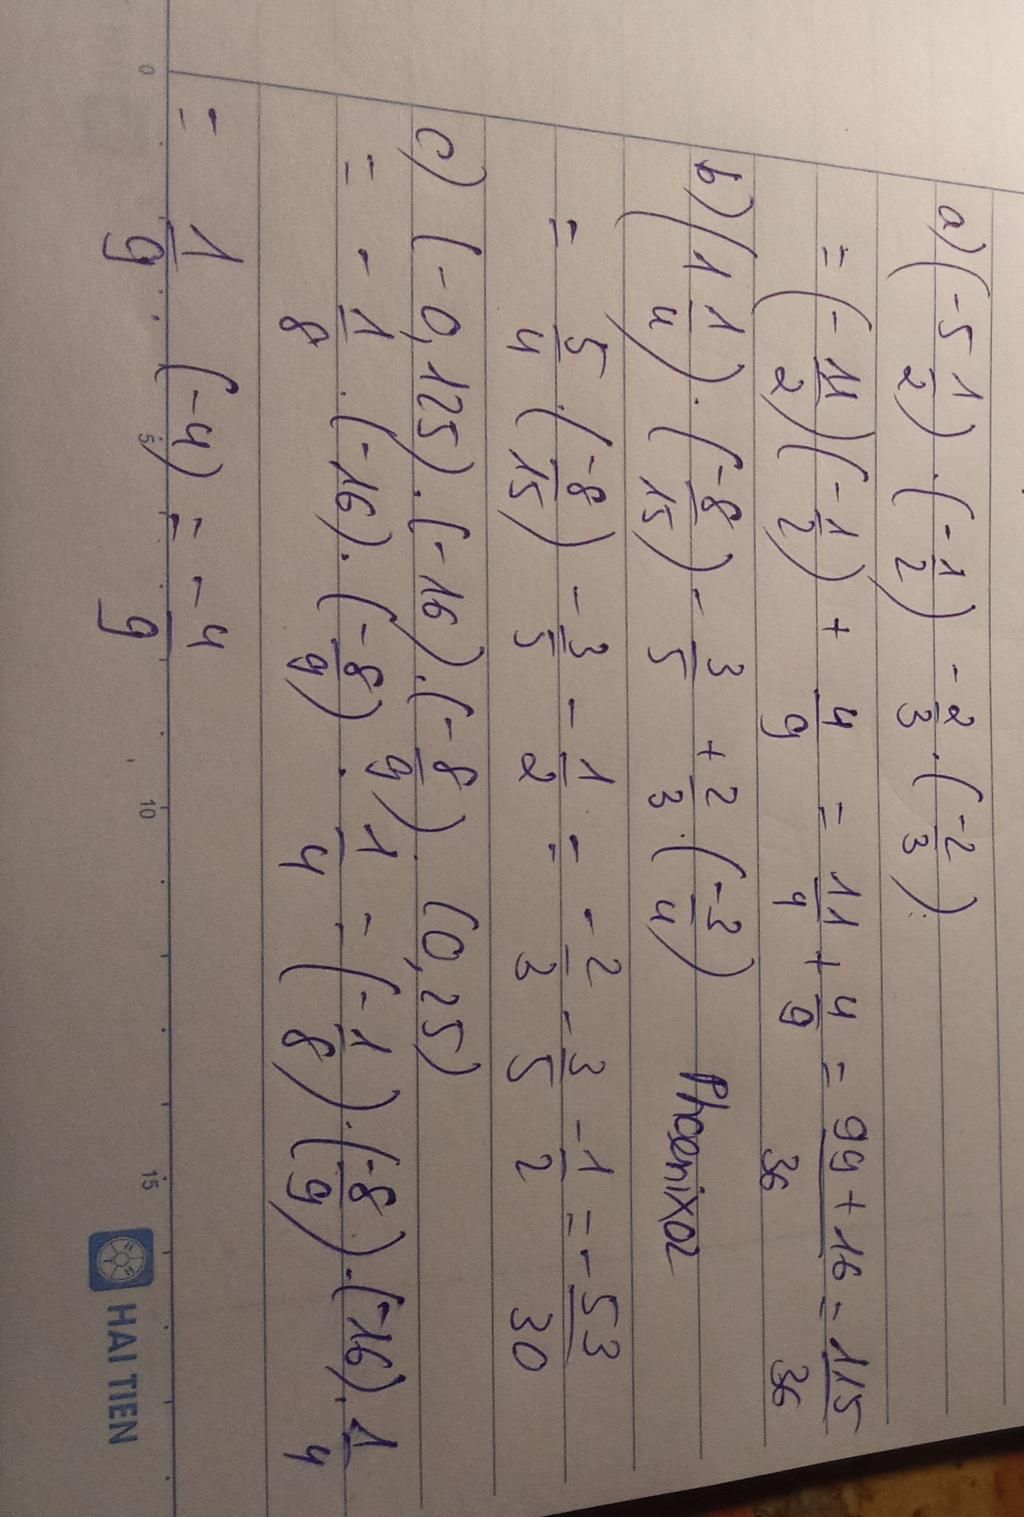 a) (-5 1/2) . (-1/2) - 2/3 . (-2/3) :
= (-11/2) (-1/2) + 4/9 = 11/4 + 4/9 = (99+16)/36 = 115/36
b) (1 1/4) . (-8/15) - 3/5 + 2/3 . (-3/4) Phoenixoz
= 5/4 . (-8/15) - 3/5 - 1/2 = -2/3 - 3/5 - 1/2 = -53/30
c) (-0,125) . (-16) . (-8/9) . (0,25)
= -1/8 . (-16) . (-8/9) . 1/4 = (-1/8) . (-8/9) . (-16) . 1/4
= 1/9 (-4) = -4/9
0 5 10 15 HAI TIEN